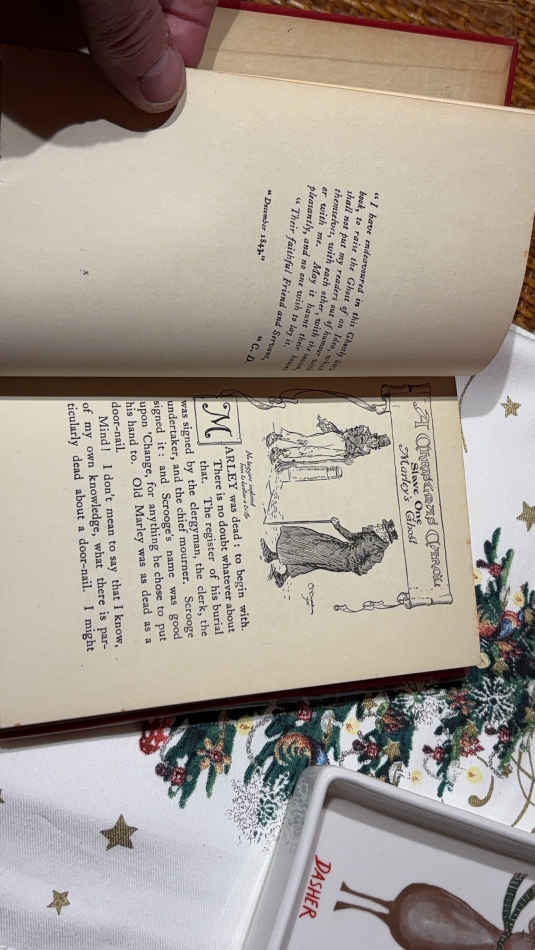 “ I have endeavoured in this Ghostly
book, to raise the Ghost of an Idea, which
shall not put my readers out of humour
themselves, with each other, with the
or with me. May it haunt their
pleasantly, and no one wish to lay it.
“ Their faithful Friend and Servant,
“ C. D
“ December 1843.”
x
A Christmas Carol
Stave One
Marley's Ghost
MARLEY was dead : to begin with.
There is no doubt whatever about
that. The register of his burial
was signed by the clergyman, the clerk, the
undertaker, and the chief mourner. Scrooge
signed it : and Scrooge's name was good
upon 'Change, for anything he chose to put
his hand to. Old Marley was as dead as a
door-nail.
Mind! I don't mean to say that I know,
of my own knowledge, what there is par-
ticularly dead about a door-nail. I might
DASHER